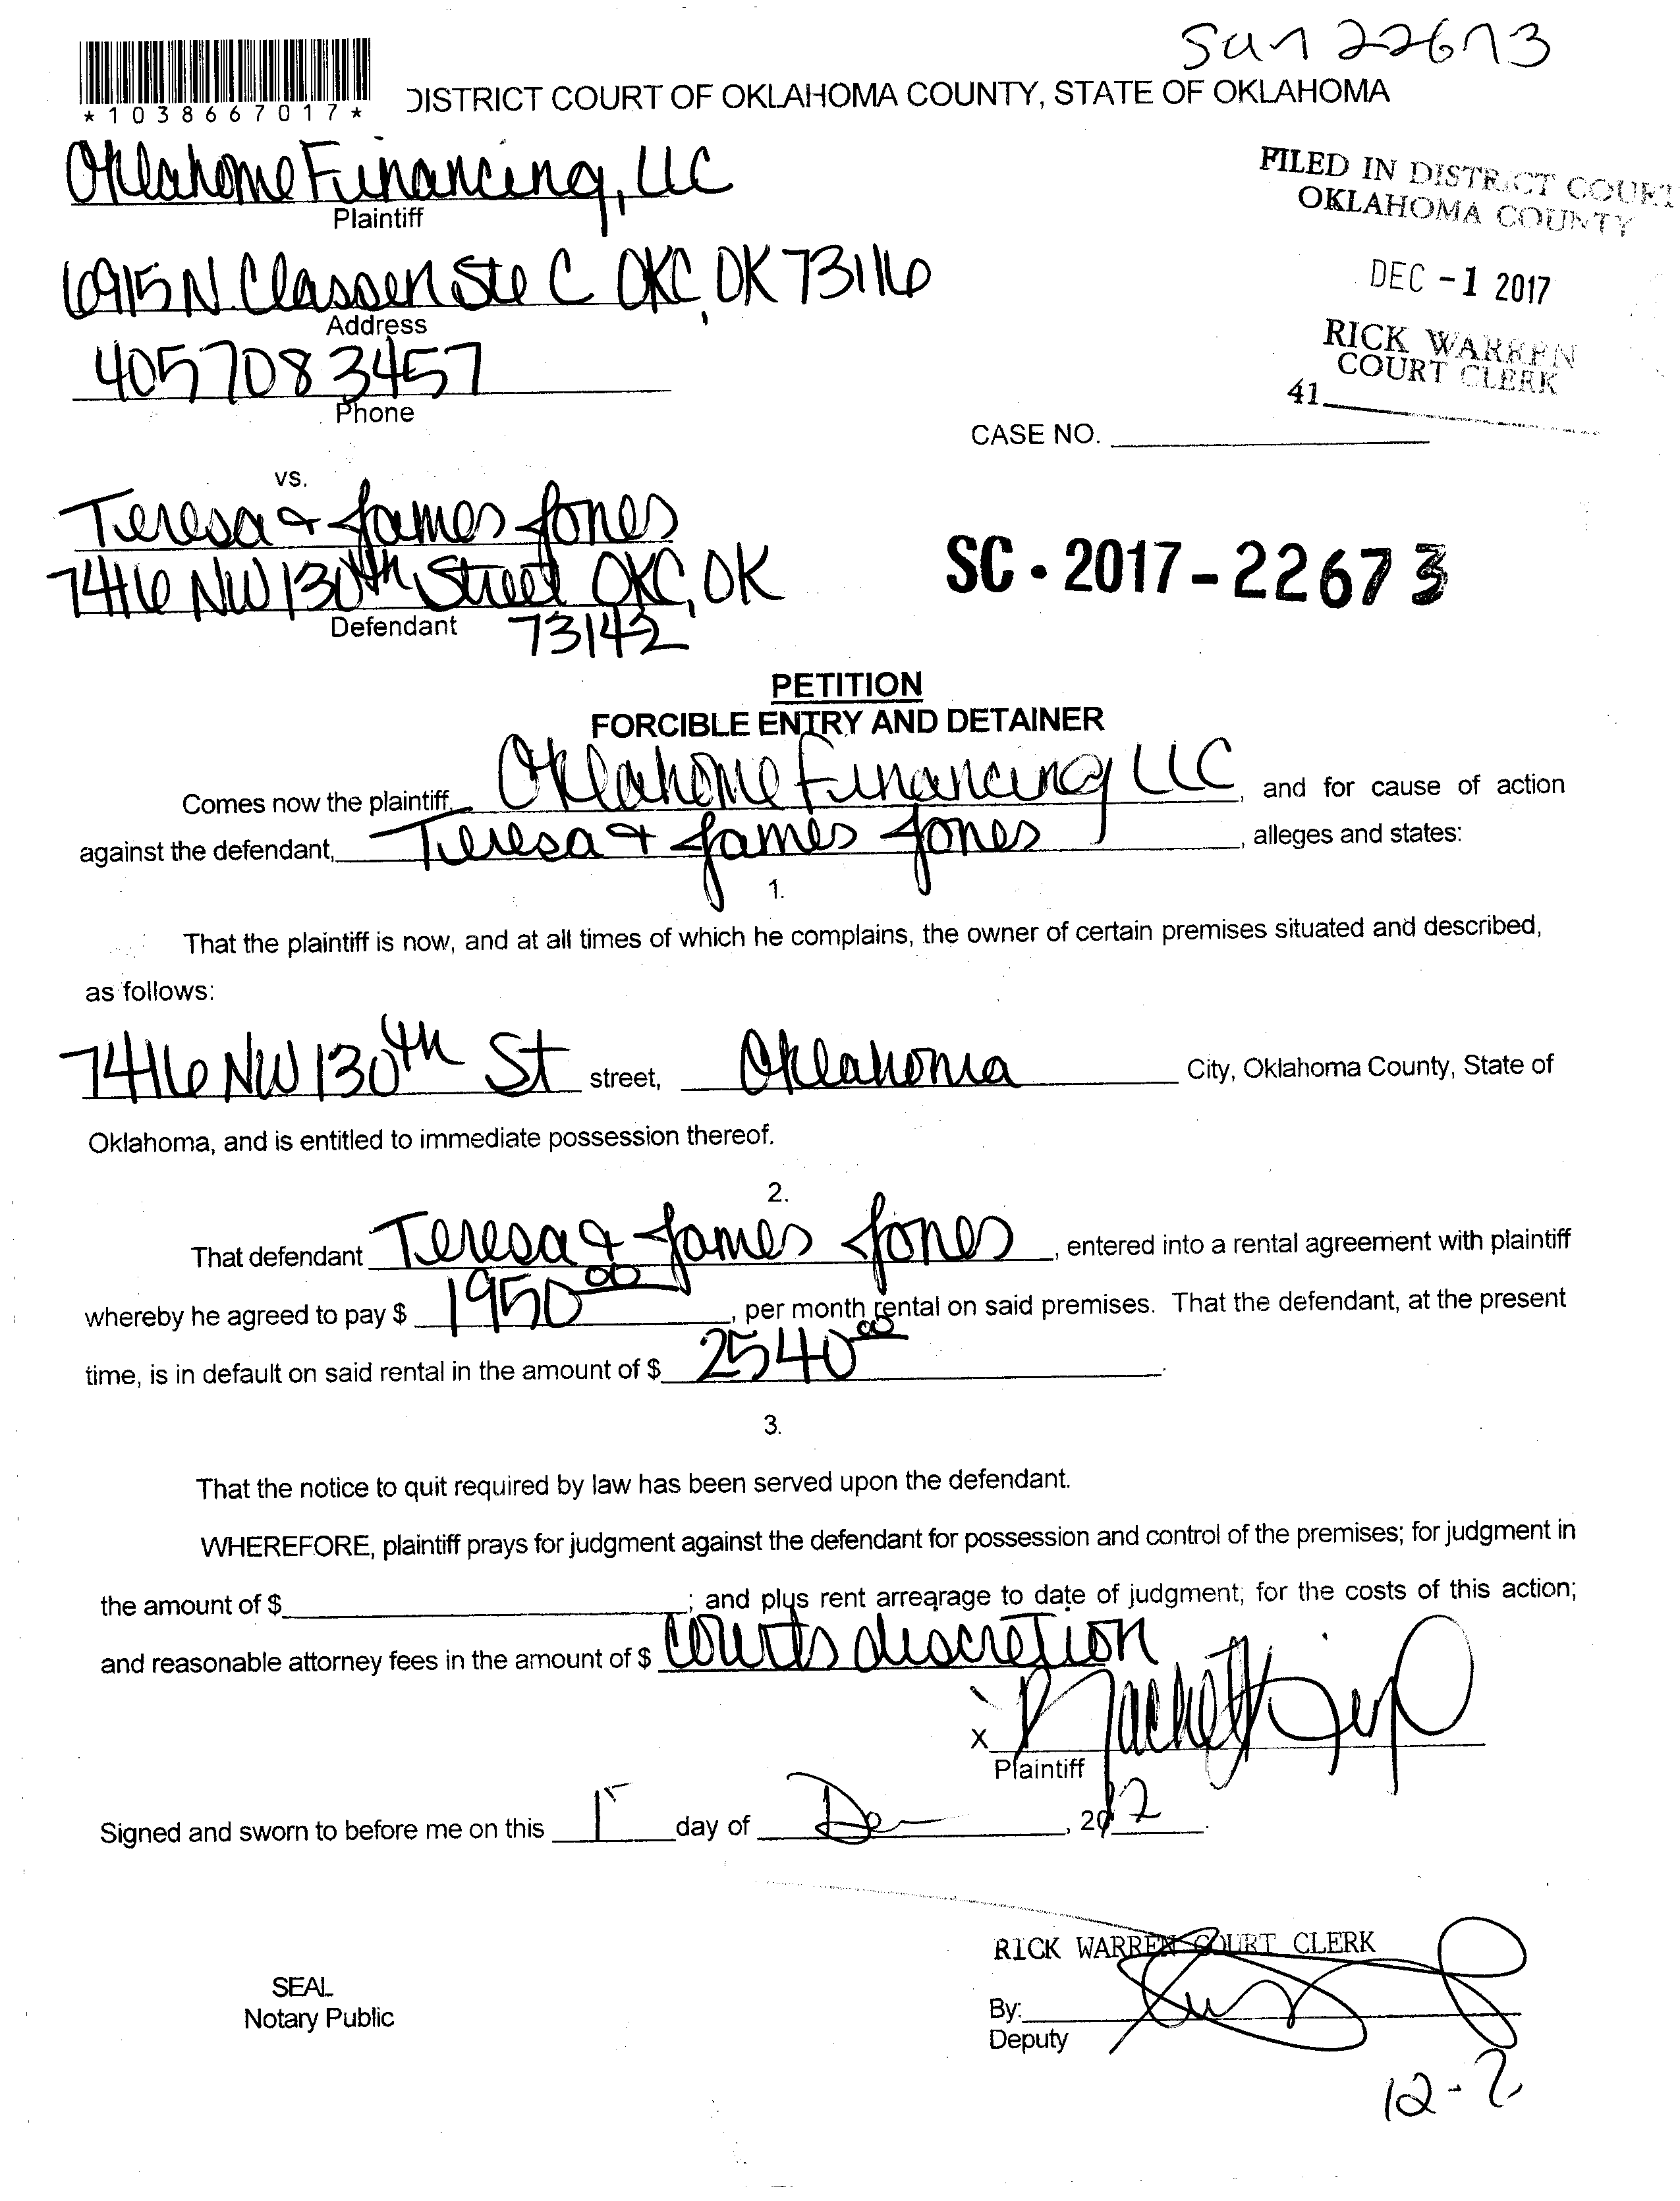 SC17 22673
*1038667017*
DISTRICT COURT OF OKLAHOMA COUNTY, STATE OF OKLAHOMA
Oklahome Financing, LLC
Plaintiff
FILED IN DISTRICT COURT
OKLAHOMA COUNTY
6915 N. Classen Ste C OKC, OK 73116
Address
DEC -1 2017
4057083457
Phone
RICK WARREN
COURT CLERK
41
CASE NO.
vs.
Teresa & James Jones
7416 NW 130th Street OKC, OK
73142
Defendant
SC-2017-22673
PETITION
FORCIBLE ENTRY AND DETAINER
Comes now the plaintiff, Oklahome Financing LLC, and for cause of action
against the defendant, Teresa & James Jones, alleges and states:
1.
That the plaintiff is now, and at all times of which he complains, the owner of certain premises situated and described,
as follows:
7416 NW 130th St street, Oklahoma City, Oklahoma County, State of
Oklahoma, and is entitled to immediate possession thereof.
2.
That defendant Teresa & James Jones, entered into a rental agreement with plaintiff
whereby he agreed to pay $ 1950 00, per month rental on said premises. That the defendant, at the present
time, is in default on said rental in the amount of $ 2540 00.
3.
That the notice to quit required by law has been served upon the defendant.
WHEREFORE, plaintiff prays for judgment against the defendant for possession and control of the premises; for judgment in
the amount of $ ; and plus rent arrearage to date of judgment; for the costs of this action;
and reasonable attorney fees in the amount of $ courts discretion
X
Plaintiff
Signed and sworn to before me on this 1 day of De , 2017.
RICK WARREN COURT CLERK
SEAL
Notary Public
By:
Deputy
12-2